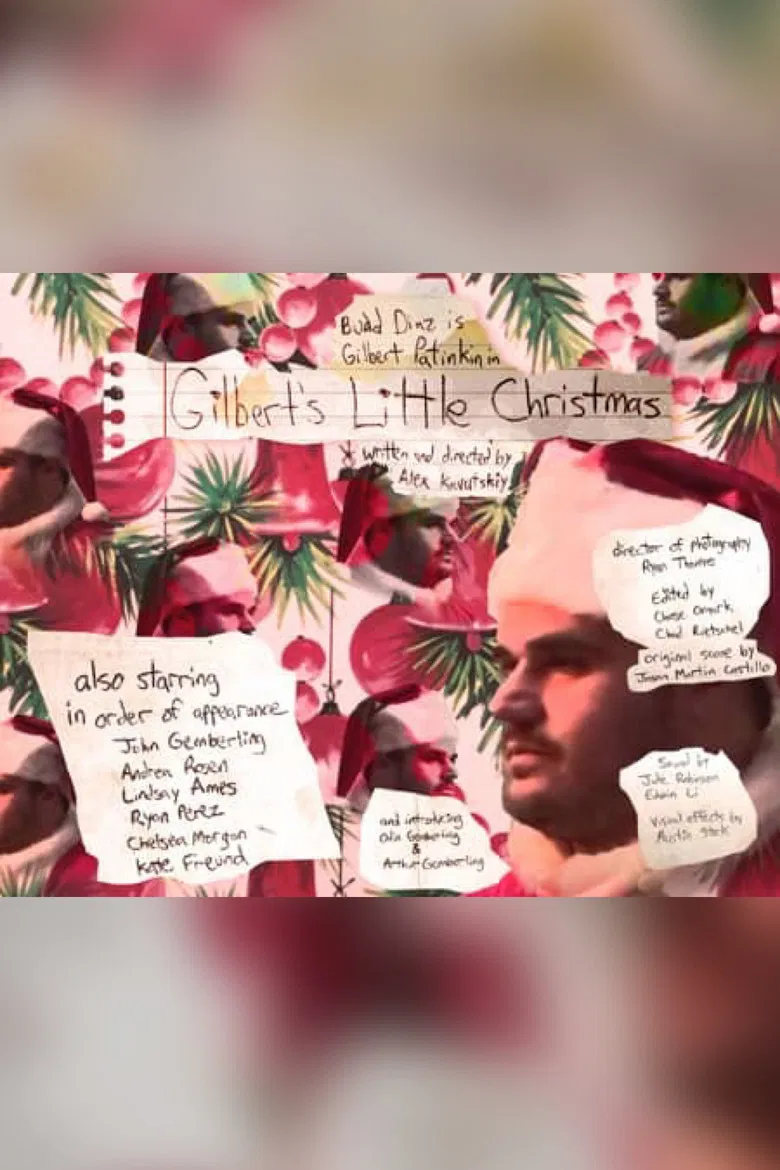 Budd Diaz is
Gilbert Patinkin in
Gilbert's Little Christmas
written and directed by
Alex Kavutskiy
director of photography
Ryan Thomas
Edited by
Chase Ormork
Chad Rietschel
original score by
Jason Martin Castillo
also starring
in order of appearance
John Gemberling
Andrea Rosen
Lindsay Ames
Ryan Perez
Chelsea Morgan
Kate Freund
and introducing
Gemberling
&
Arthur Gemberling
Sound by
Jute Robinson
Edwin Li
visual effects by
Austin